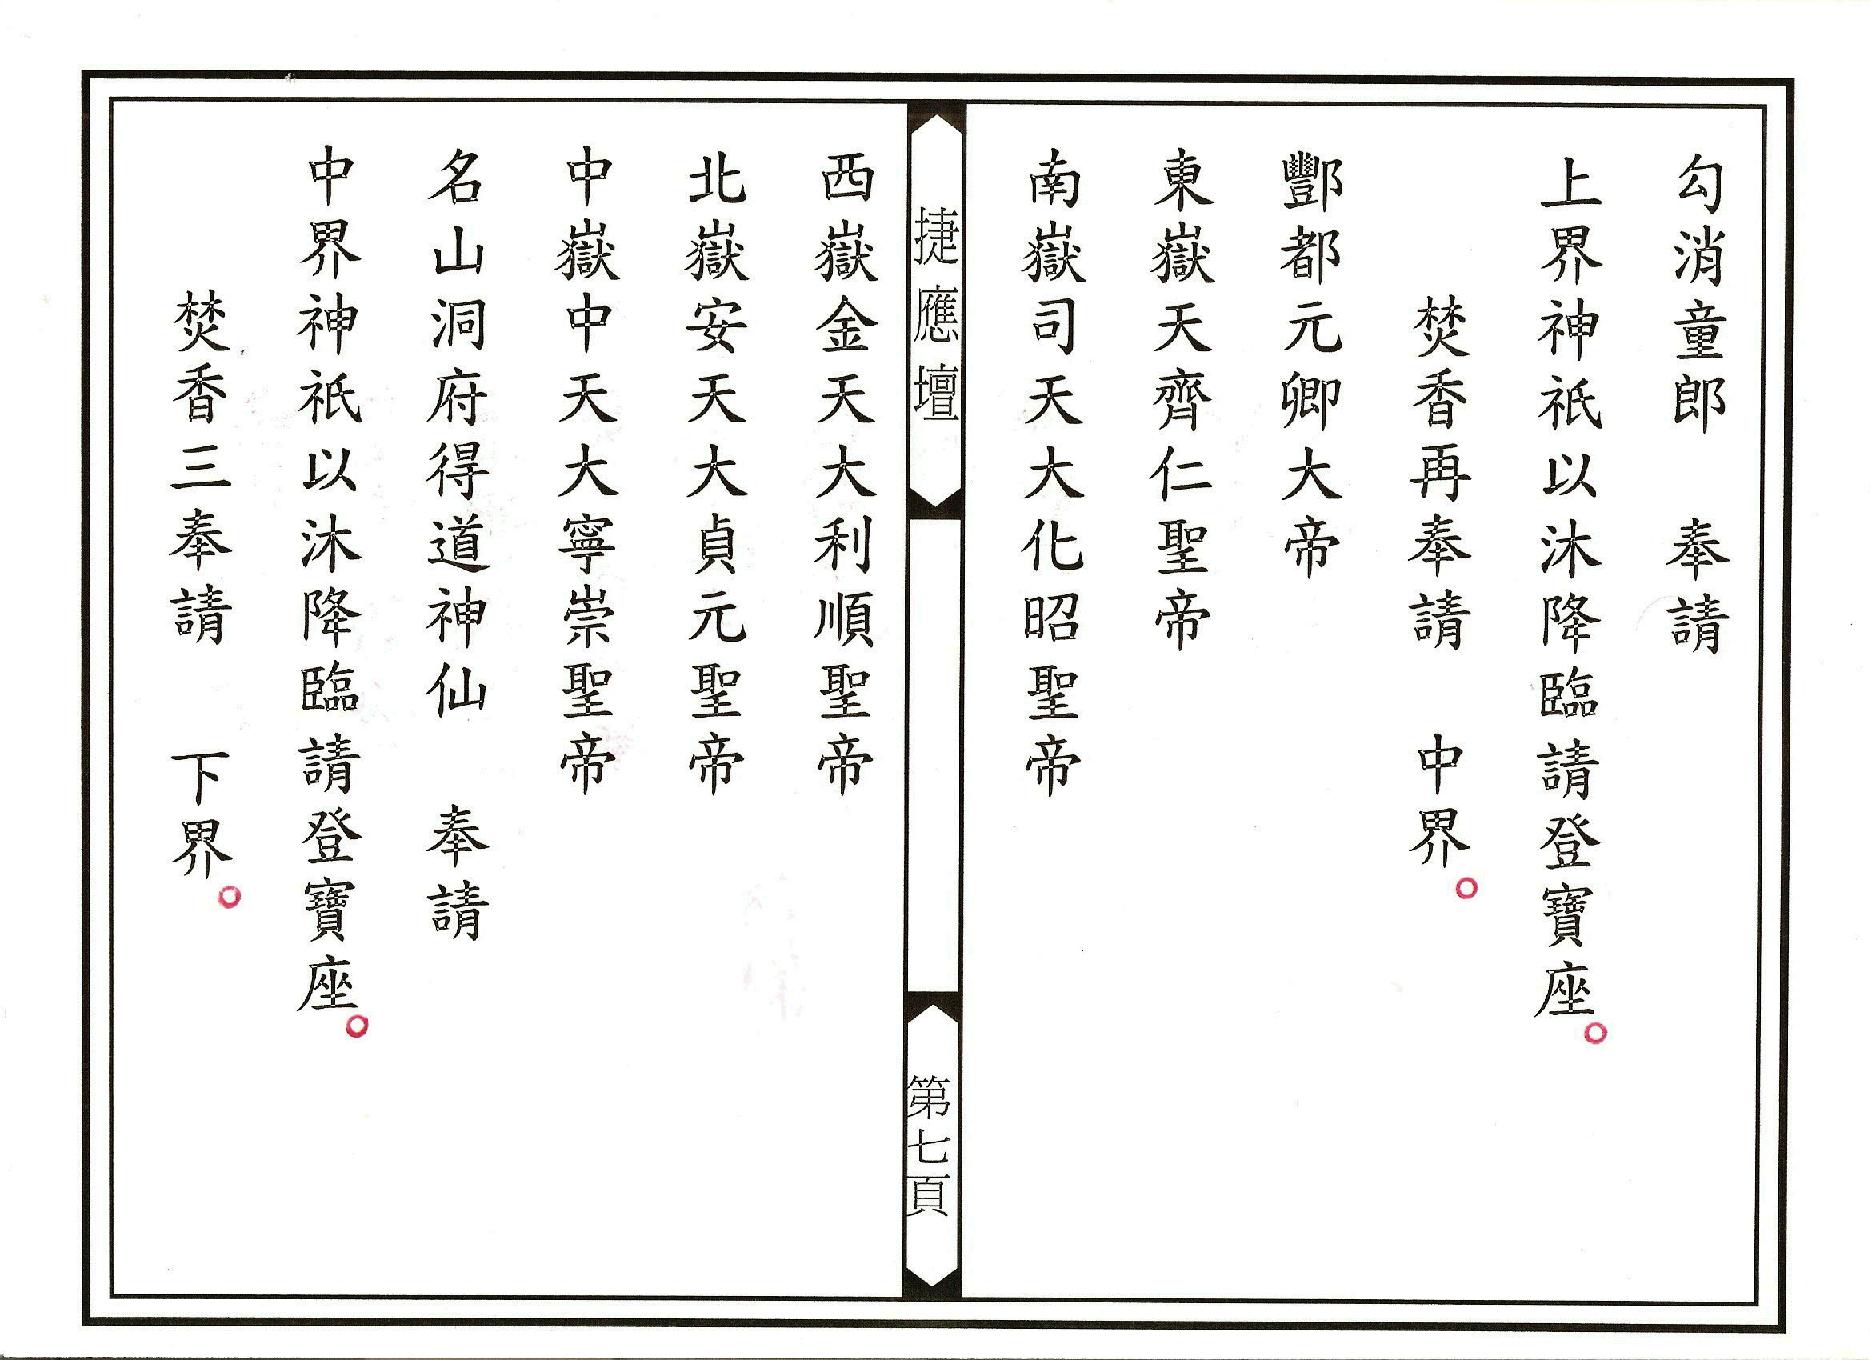 勾消童郎　奉請
上界神祇以沐降臨請登寶座。
焚香再奉請　中界。
酆都元卿大帝
東嶽天齊仁聖帝
南嶽司天大化昭聖帝
捷應壇
第七頁
西嶽金天大利順聖帝
北嶽安天大貞元聖帝
中嶽中天大寧崇聖帝
名山洞府得道神仙　奉請
中界神祇以沐降臨請登寶座。
焚香三奉請　下界。